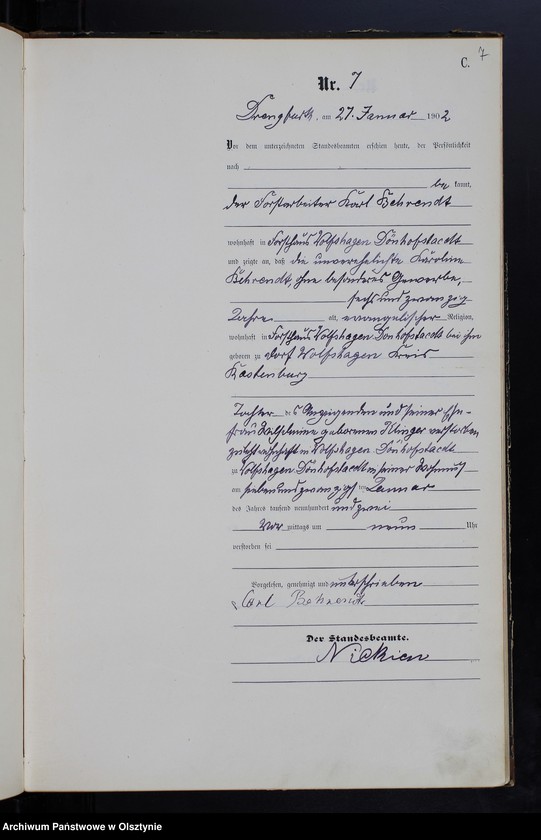 C. 7
Nr. 7
Drengfurth, am 27. Januar 1902
Vor dem unterzeichneten Standesbeamten erschien heute, der Persönlichkeit
nach
be kannt,
der Forstarbeiter Karl Behrendt
wohnhaft in Forsthaus Wolfshagen Dönhofstaedt
und zeigte an, daß die unverehelichte Karoline
Behrendt, ohne besonderes Gewerbe,
sechs und zwanzig
Jahre alt, evangelischer Religion,
wohnhaft in Forsthaus Wolfshagen Dönhofstaedt bei ihm
geboren zu Dorf Wolfshagen Kreis
Rastenburg
Tochter des Anzeigenden und seiner Ehe-
frau Wilhelmine geborenen verstorben
zuletzt wohnhaft in Wolfshagen Dönhofstaedt
zu Wolfshagen Dönhofstaedt in seiner Wohnung
am sieben und zwanzigsten Januar
des Jahres tausend neunhundert und zwei
Vor mittags um neun Uhr
verstorben sei
Vorgelesen, genehmigt und unterschrieben
Carl Behrendt
Der Standesbeamte.
Nickien
Archiwum Państwowe w Olsztynie